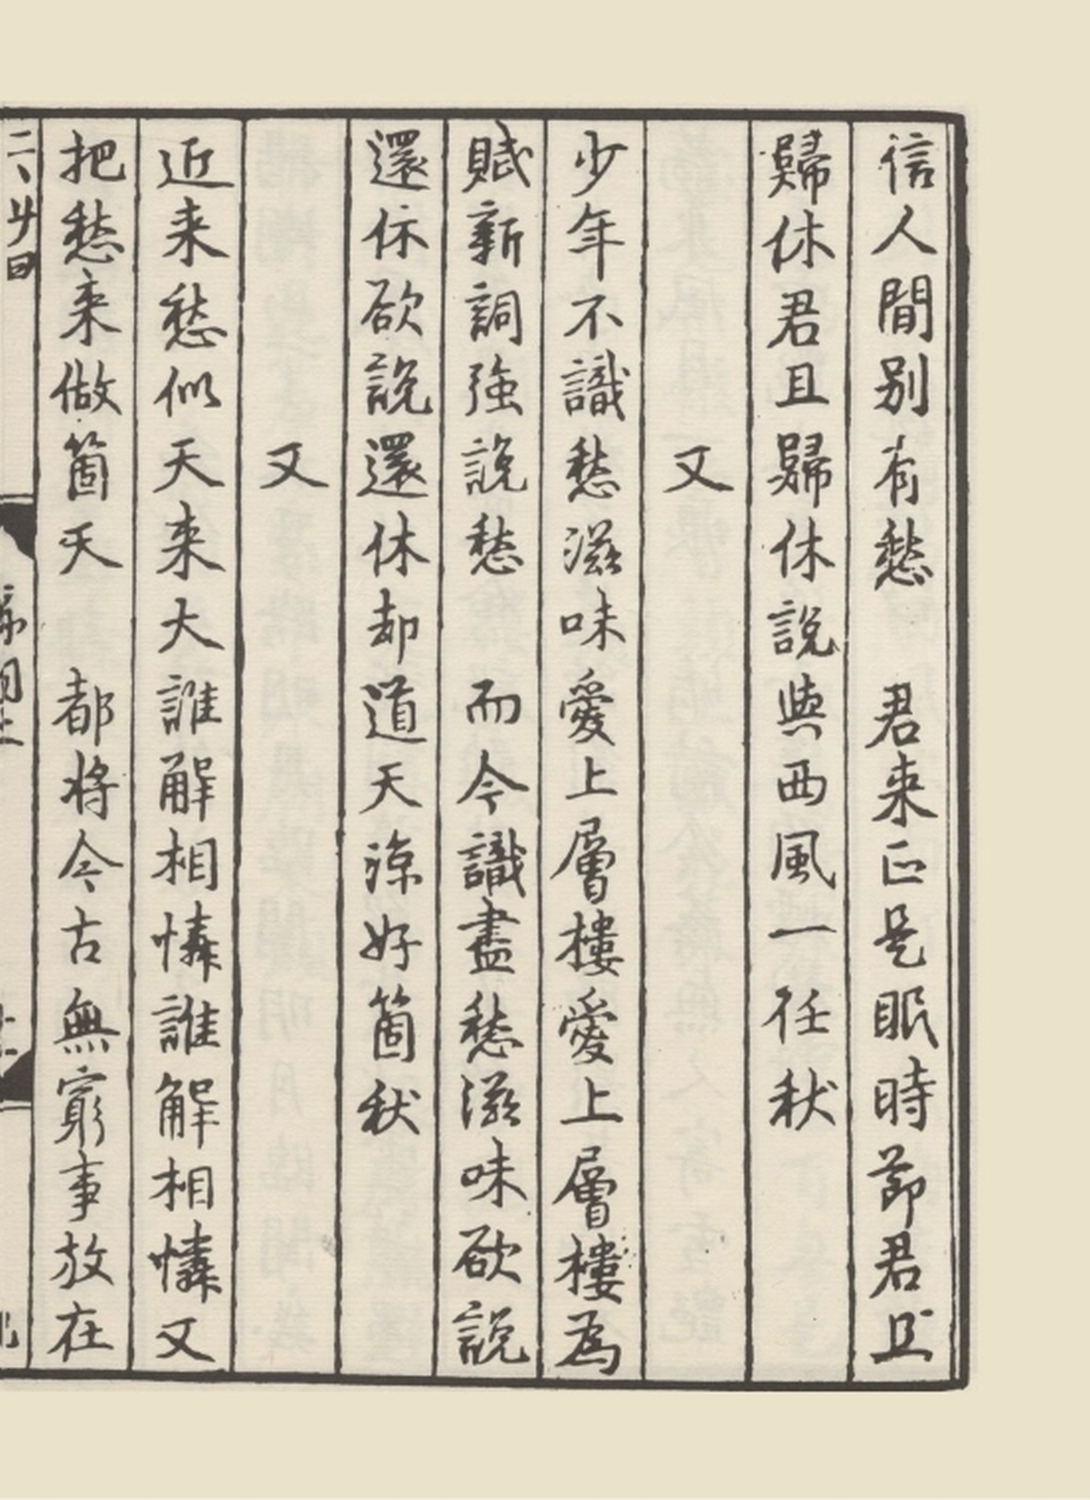 信人間别有愁　君来正是眠時節君且
歸休君且歸休說與西風一任秋
又
少年不識愁滋味愛上層樓愛上層樓為
賦新詞強說愁　而今識盡愁滋味欲說
還休欲說還休却道天涼好箇秋
又
近来愁似天来大誰解相憐誰解相憐又
把愁来做箇天　都将今古無窮事放在